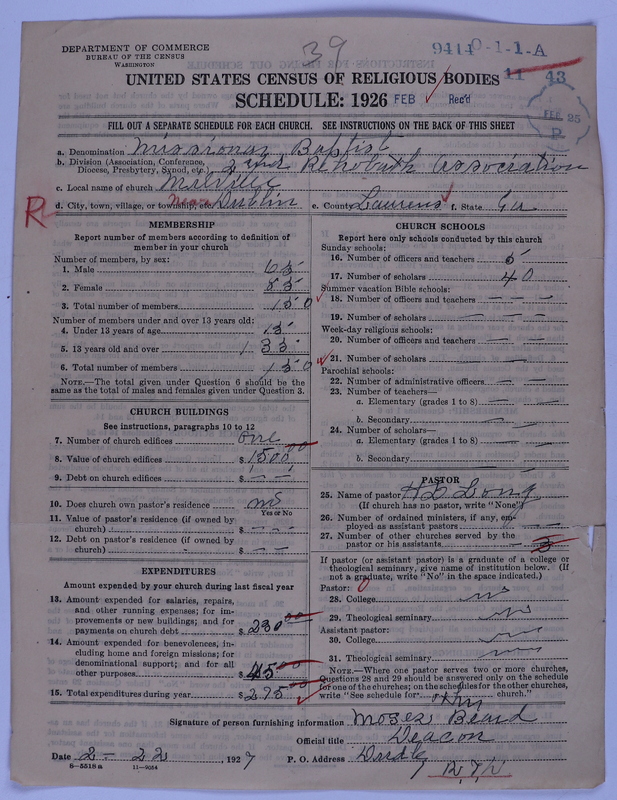 DEPARTMENT OF COMMERCE
BUREAU OF THE CENSUS
WASHINGTON
39
9414 0-1-1-A
11 43
UNITED STATES CENSUS OF RELIGIOUS BODIES
SCHEDULE: 1926 FEB Rec'd
FEB 25
P.
FILL OUT A SEPARATE SCHEDULE FOR EACH CHURCH. SEE INSTRUCTIONS ON THE BACK OF THIS SHEET
a. Denomination Missionary Baptist
b. Division (Association, Conference, Diocese, Presbytery, Synod, etc.) Rehobath Association
c. Local name of church
d. City, town, village, or township, etc. Near Dublin e. County Laurens f. State Ga
R
MEMBERSHIP
Report number of members according to definition of member in your church
Number of members, by sex:
1. Male 65
2. Female 85
3. Total number of members 150
Number of members under and over 13 years old:
4. Under 13 years of age 15
5. 13 years old and over 135
6. Total number of members 150
NOTE.—The total given under Question 6 should be the same as the total of males and females given under Question 3.
CHURCH BUILDINGS
See instructions, paragraphs 10 to 12
7. Number of church edifices One
8. Value of church edifices $1500.00
9. Debt on church edifices $ — —
10. Does church own pastor's residence no
Yes or No
11. Value of pastor's residence (if owned by church) $ — — —
12. Debt on pastor's residence (if owned by church) $ — —
EXPENDITURES
Amount expended by your church during last fiscal year
13. Amount expended for salaries, repairs, and other running expenses; for improvements or new buildings; and for payments on church debt $230.00
14. Amount expended for benevolences, including home and foreign missions; for denominational support; and for all other purposes $45.00
15. Total expenditures during year $275.00
CHURCH SCHOOLS
Report here only schools conducted by this church
Sunday schools:
16. Number of officers and teachers 5
17. Number of scholars 40
Summer vacation Bible schools:
18. Number of officers and teachers — —
19. Number of scholars — —
Week-day religious schools:
20. Number of officers and teachers — —
21. Number of scholars —
Parochial schools:
22. Number of administrative officers — —
23. Number of teachers—
a. Elementary (grades 1 to 8) — —
b. Secondary — —
24. Number of scholars—
a. Elementary (grades 1 to 8) — —
b. Secondary — —
PASTOR
25. Name of pastor Long
(If church has no pastor, write "None")
26. Number of ordained ministers, if any, employed as assistant pastors — —
27. Number of other churches served by the pastor or his assistants — 3
If pastor (or assistant pastor) is a graduate of a college or theological seminary, give name of institution below. (If not a graduate, write "No" in the space indicated.)
Pastor: 0
28. College no
29. Theological seminary no
Assistant pastor:
30. College no
31. Theological seminary no
NOTE.—Where one pastor serves two or more churches, Questions 28 and 29 should be answered only on the schedule for one of the churches; on the schedules for the other churches, write "See schedule for church."
Signature of person furnishing information Moses Beard
Official title Deacon
Date 2 - 22 1927 P. O. Address
8-5518 a 11-9054